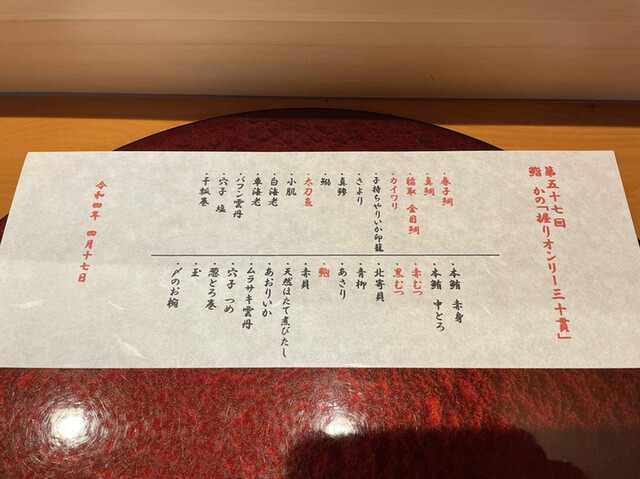 第五十七回
鮨 かの「握りオンリー三十貫」
・春子鯛
・真鯛
・脇取 金目鯛
・カイワリ
・子持ちやりいか印籠
・さより
・真鯵
・鰯
・太刀魚
・小肌
・白海老
・車海老
・バフン雲丹
・穴子 塩
・干瓢巻
・本鮪 赤身
・本鮪 中とろ
・赤むつ
・黒むつ
・北寄貝
・青柳
・あさり
・鮑
・赤貝
・天然ほたて煮びたし
・あおりいか
・ムラサキ雲丹
・穴子 つめ
・葱とろ巻
・玉
・〆のお椀
令和四年 四月十七日